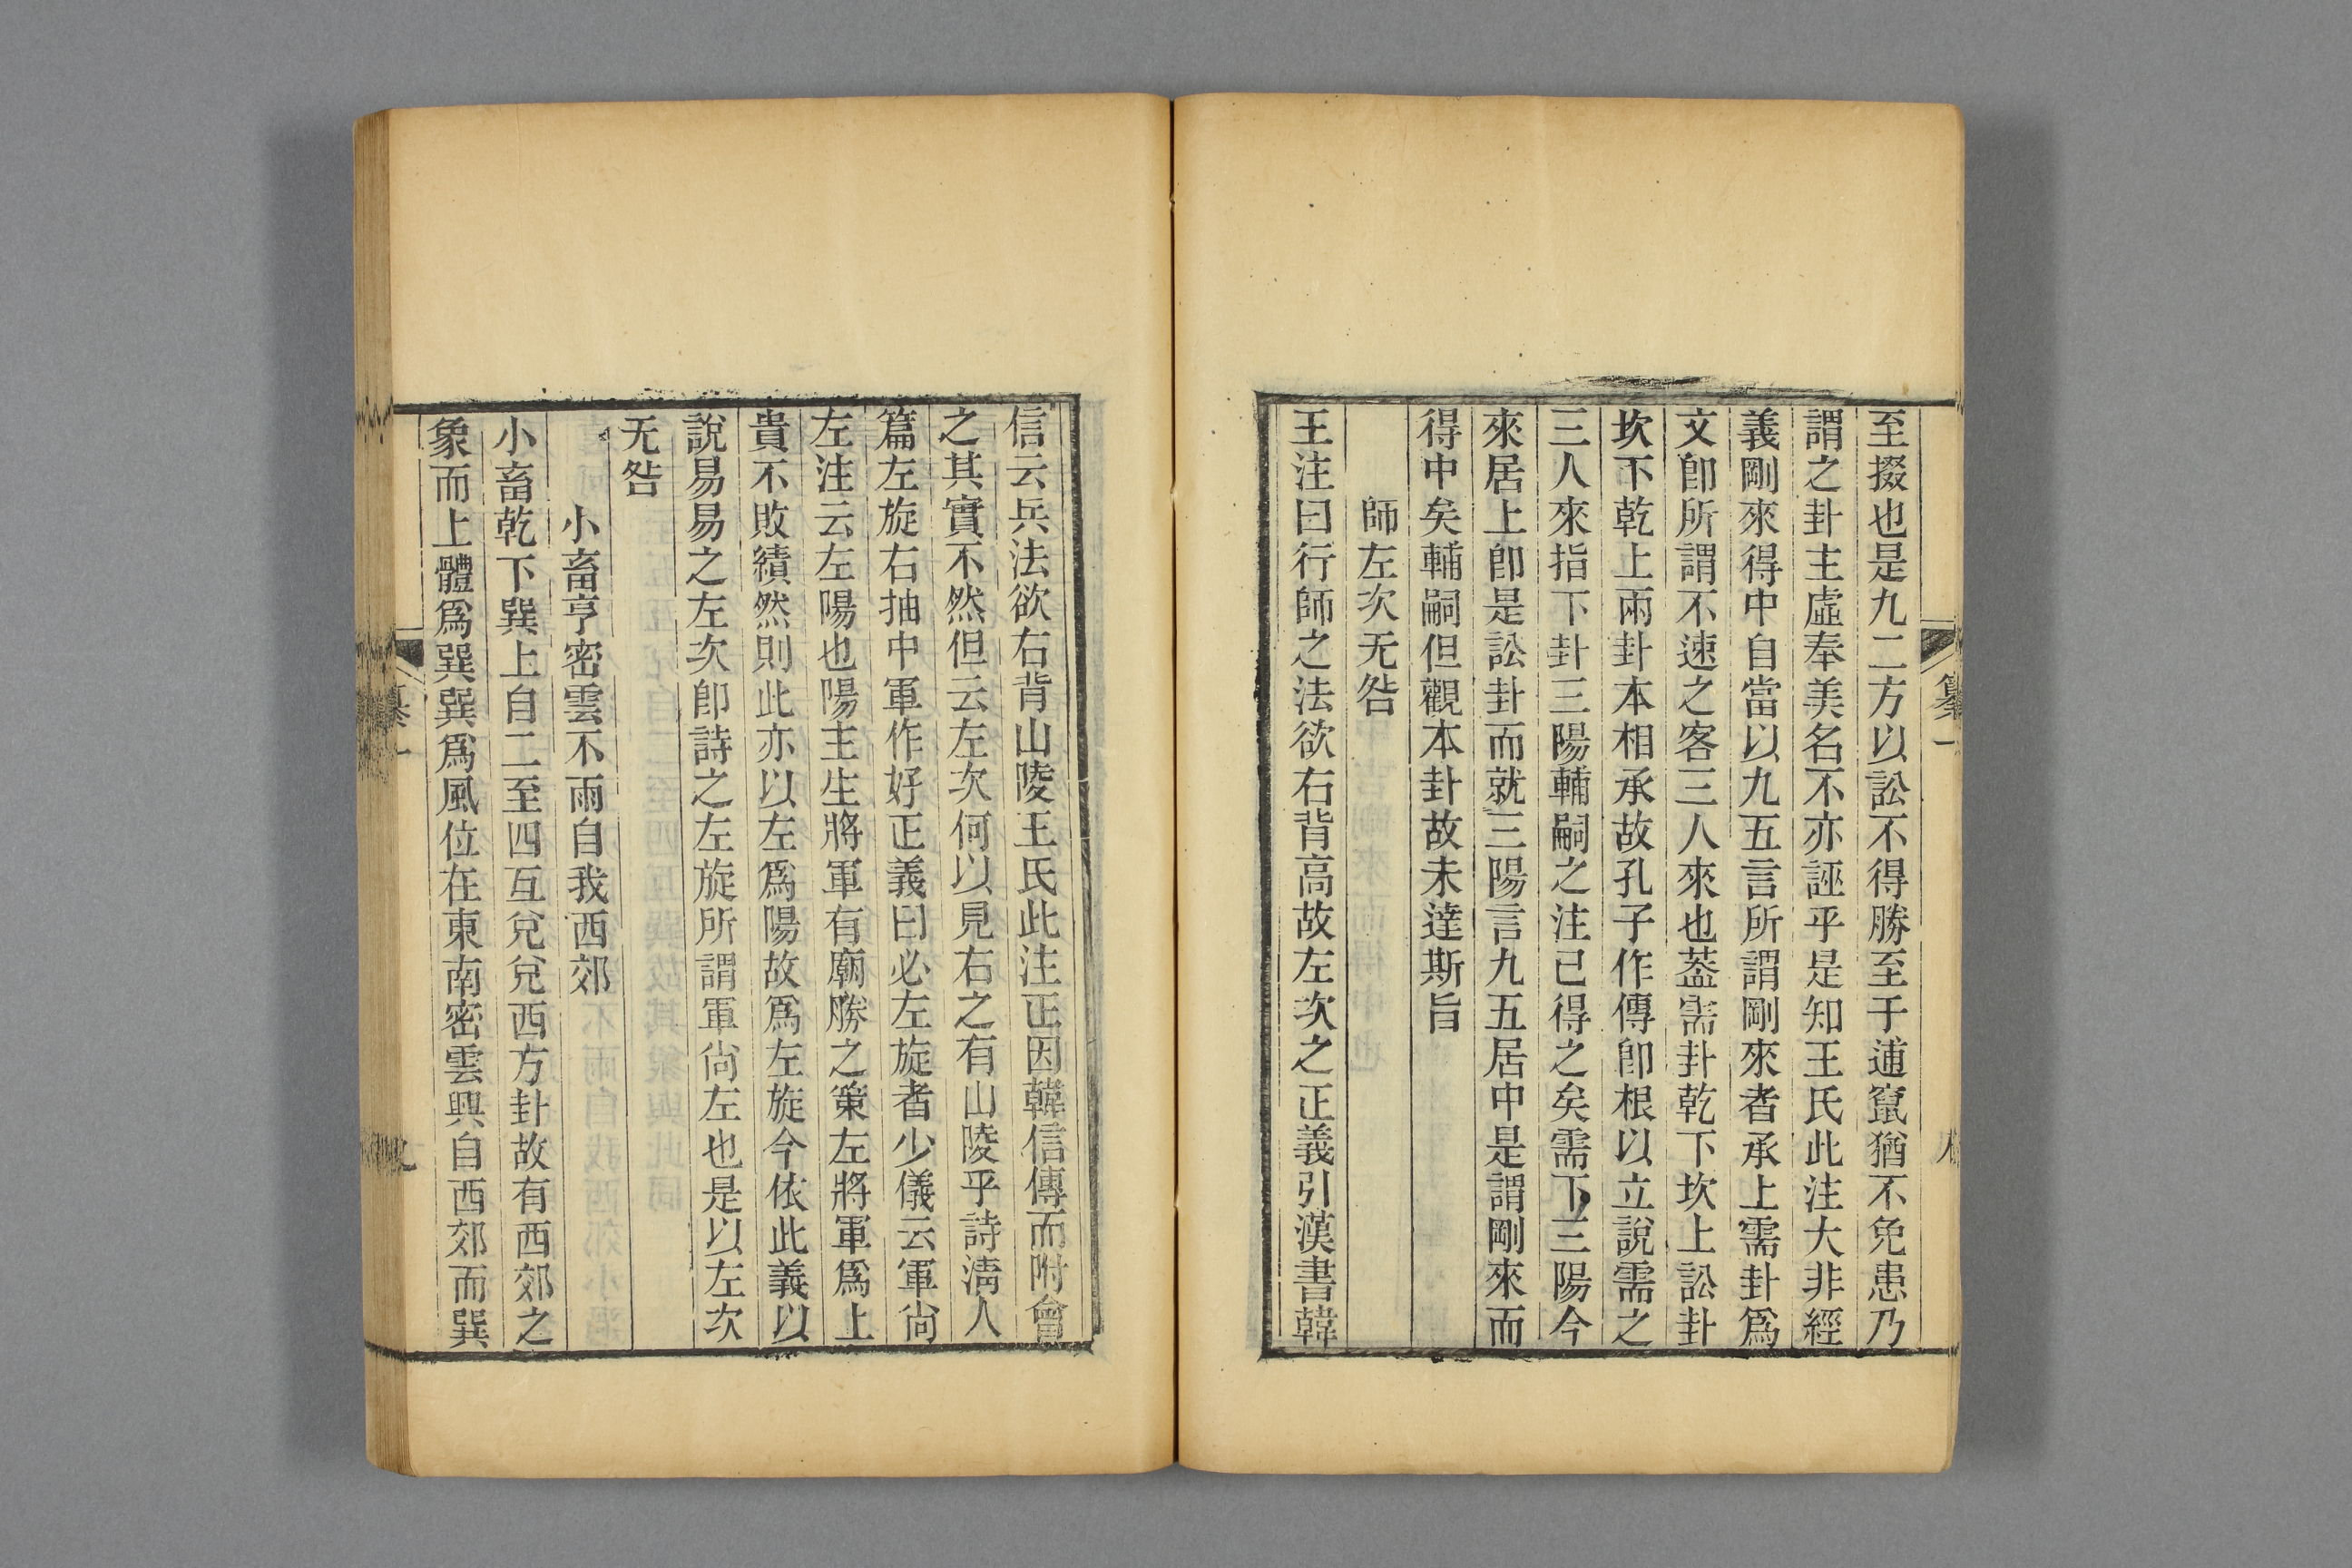 至掇也是九二方以訟不得勝至于逋竄猶不免患乃
謂之卦主虛奉美名不亦誣乎是知王氏此注大非經
義剛來得中自當以九五言所謂剛來者承上需卦爲
文卽所謂不速之客三人來也葢需卦乾下坎上訟卦
坎下乾上兩卦本相承故孔子作傳卽根以立說需之
三人來指下卦三陽輔嗣之注已得之矣需下三陽今
來居上卽是訟卦而就三陽言九五居中是謂剛來而
得中矣輔嗣但觀本卦故未達斯旨
師左次无咎
王注曰行師之法欲右背高故左次之正義引漢書韓
信云兵法欲右背山陵王氏此注正因韓信傳而附會
之其實不然但云左次何以見右之有山陵乎詩淸人
篇左旋右抽中軍作好正義曰必左旋者少儀云軍尙
左注云左陽也陽主生將軍有廟勝之策左將軍爲上
貴不敗績然則此亦以左爲陽故爲左旋今依此義以
說易易之左次卽詩之左旋所謂軍尙左也是以左次
无咎
小畜亨密雲不雨自我西郊
小畜乾下巽上自二至四互兌兌西方卦故有西郊之
象而上體爲巽巽爲風位在東南密雲興自西郊而巽
纂一